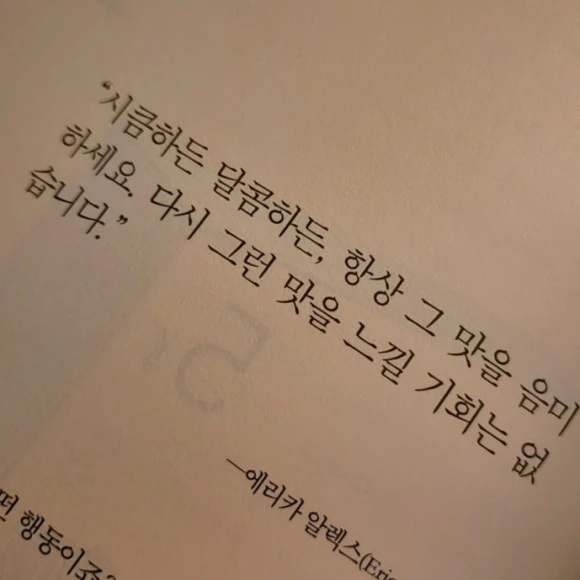 “시큼하든 달콤하든, 항상 그 맛을 음미
하세요. 다시 그런 맛을 느낄 기회는 없
습니다.”
—에리카 알렉스(Eric
떤 행동이죠?